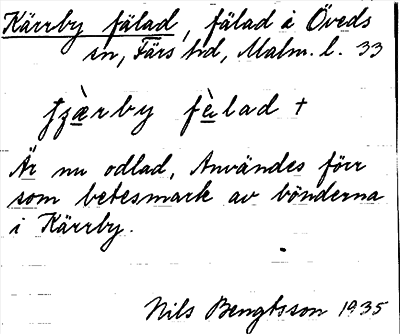 Kärrby fälad, fälad i Öveds
sn, Färs hd, Malm. l. 33
fälad +
Är nu odlad, Användes förr
som betesmark av bönderna
i Kärrby.
Nils Bengtsson 1935